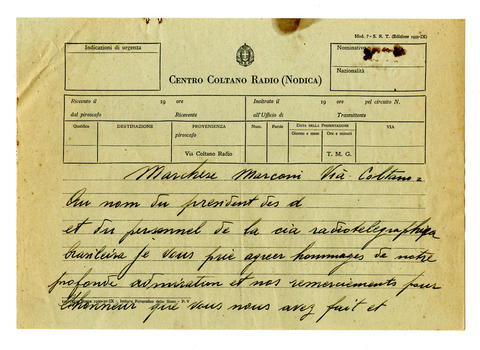 Mod. 7 - S. R. T. (Edizione 1930-IX)
Indicazioni di urgenza
Nominativo
Nazionalità
CENTRO COLTANO RADIO (NODICA)
Ricevuto il 19 ore
dal piroscafo Ricevente
Inoltrato il 19 ore pel circuito N.
all'Ufficio di Trasmittente
Qualifica DESTINAZIONE PROVENIENZA Num. Parole DATA DELLA PRESENTAZIONE VIA
piroscafo Giorno e mese Ore e minuti
Via Coltano Radio T. M. G.
Marchese Marconi Via Coltano =
Au nom du president des d
et du personnel de la cia radiotelegraphica
brasileira je vous prie agreer hommages de notre
profonde admiration et nos remerciements pour
l'honneur que vous nous avez fait et
Istituto Poligrafico dello Stato - P. V